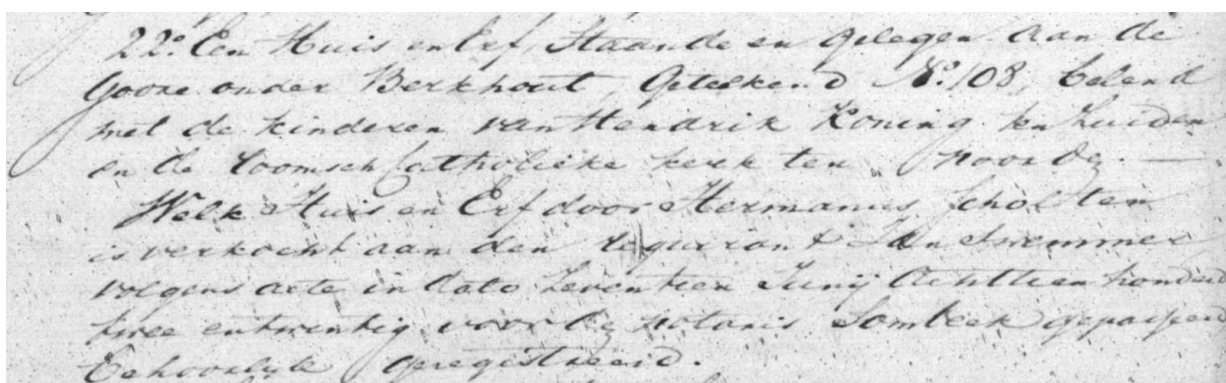 22o. Een Huis en Erf, Staande en gelegen aan de
Goore onder Berkhout, Geteekend No. 108, belend
met de kinderen van Hendrik Koning ten Zuiden
en de Roomsch Catholieke kerk ten Noorde —
Welk Huis en Erf door Hermanus Scholten
is verkocht aan den requirant Jan
volgens acte in dato Zeventien Junij Achttien honderd
twee en twintig voor de notaris Sombeek gepasseerd
Behoorlyk geregistreerd.